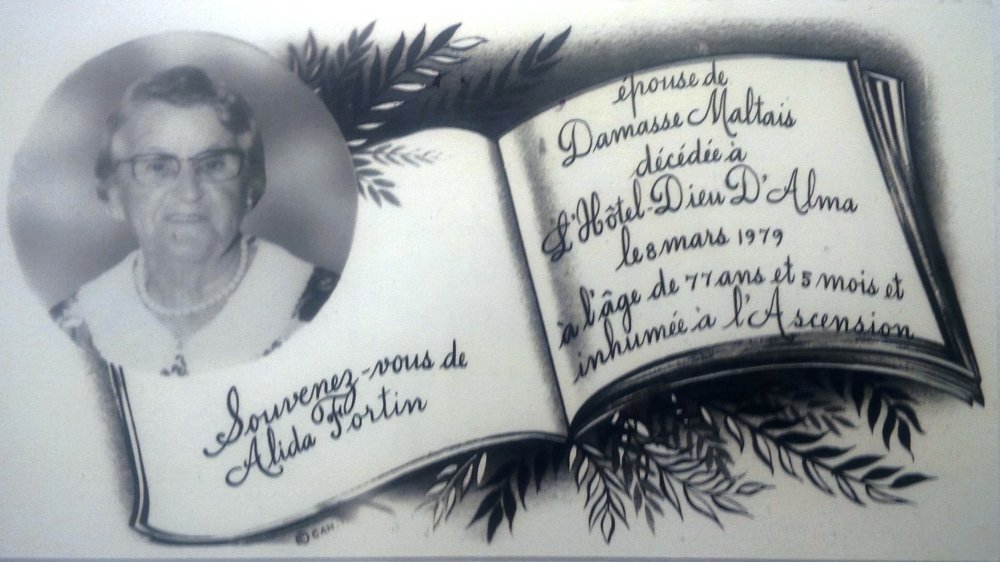 Souvenez-vous de
Alida Fortin
© CAN.
épouse de
Damasse Maltais
décédée à
L'Hôtel-Dieu D'Alma
le 8 mars 1979
à l'âge de 77 ans et 5 mois et
inhumée à l'Ascension